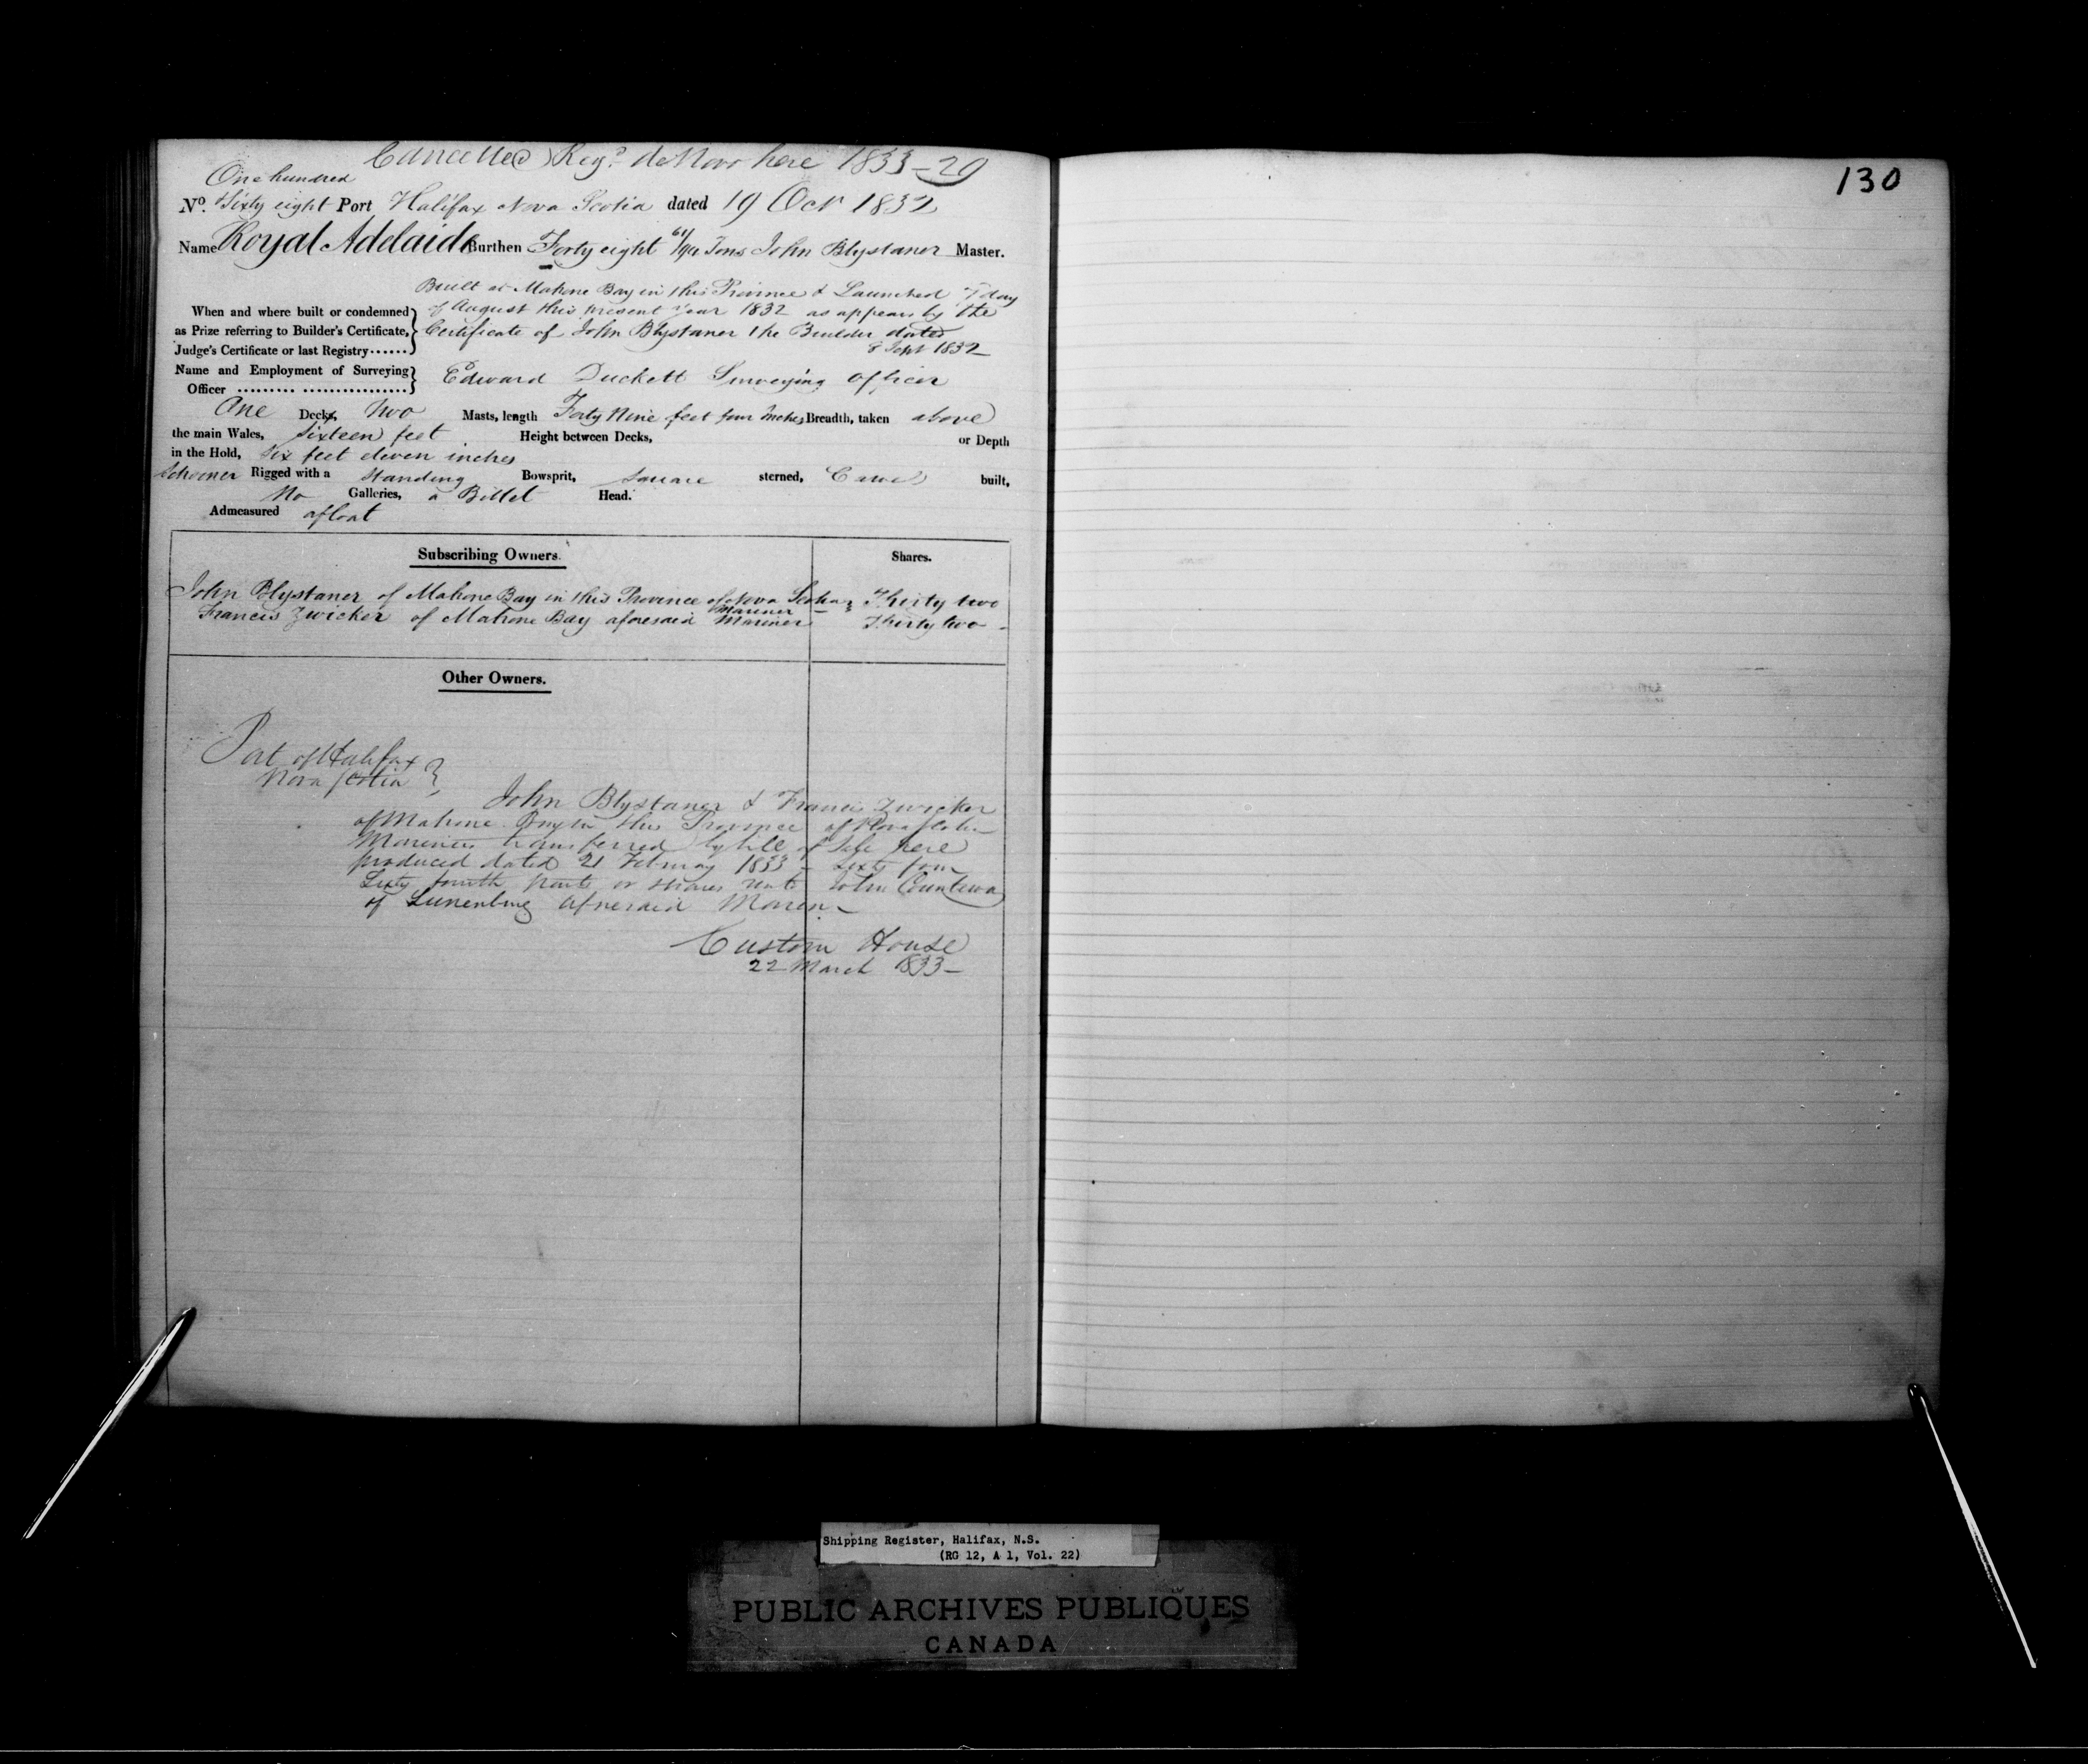 Cancelled Regd. de Novo here 1833 - 29
One hundred
No. Sixty eight Port Halifax Nova Scotia dated 19 Oct 1832
Name Royal Adelaide Burthen Forty eight 61/94 Tons John Blystaner Master.
Built at Mahone Bay in this Province & Launched 7 day
When and where built or condemned of August this present year 1832 as appears by the
as Prize referring to Builder's Certificate, Certificate of John Blystaner the Builder dated
Judge's Certificate or last Registry...... 8 Sept 1832
Name and Employment of Surveying
Officer ......... ................ Edward Duckett Surveying officer
One Decks, Two Masts, length Forty Nine feet four Inches Breadth, taken above
the main Wales, Sixteen feet Height between Decks, or Depth
in the Hold, Six feet eleven inches
Schooner Rigged with a Standing Bowsprit, Square sterned, Carvel built,
No Galleries, a Billet Head.
Admeasured afloat
Subscribing Owners. Shares.
John Blystaner of Mahone Bay in this Province of Nova Scotia Mariner Thirty two
Francis Zwicker of Mahone Bay aforesaid Mariner Thirty two
Other Owners.
Port of Halifax
Nova Scotia
John Blystaner & Francis Zwicker
of Mahone Bay in this Province of Nova Scotia
Mariners transferred by bill of Sale here
produced dated 21 February 1833 - Sixty four
Sixty fourth parts or shares unto John
of Lunenburg aforesaid Mariner
Custom House
22 March 1833
130
Shipping Register, Halifax, N.S.
(RG 12, A 1, Vol. 22)
PUBLIC ARCHIVES PUBLIQUES
CANADA